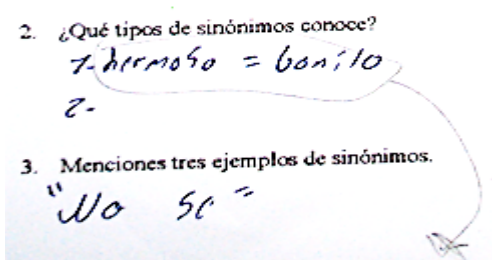 2. ¿Qué tipos de sinónimos conoce?
1- hermoso = bonito
2-
3. Menciones tres ejemplos de sinónimos.
"No se"